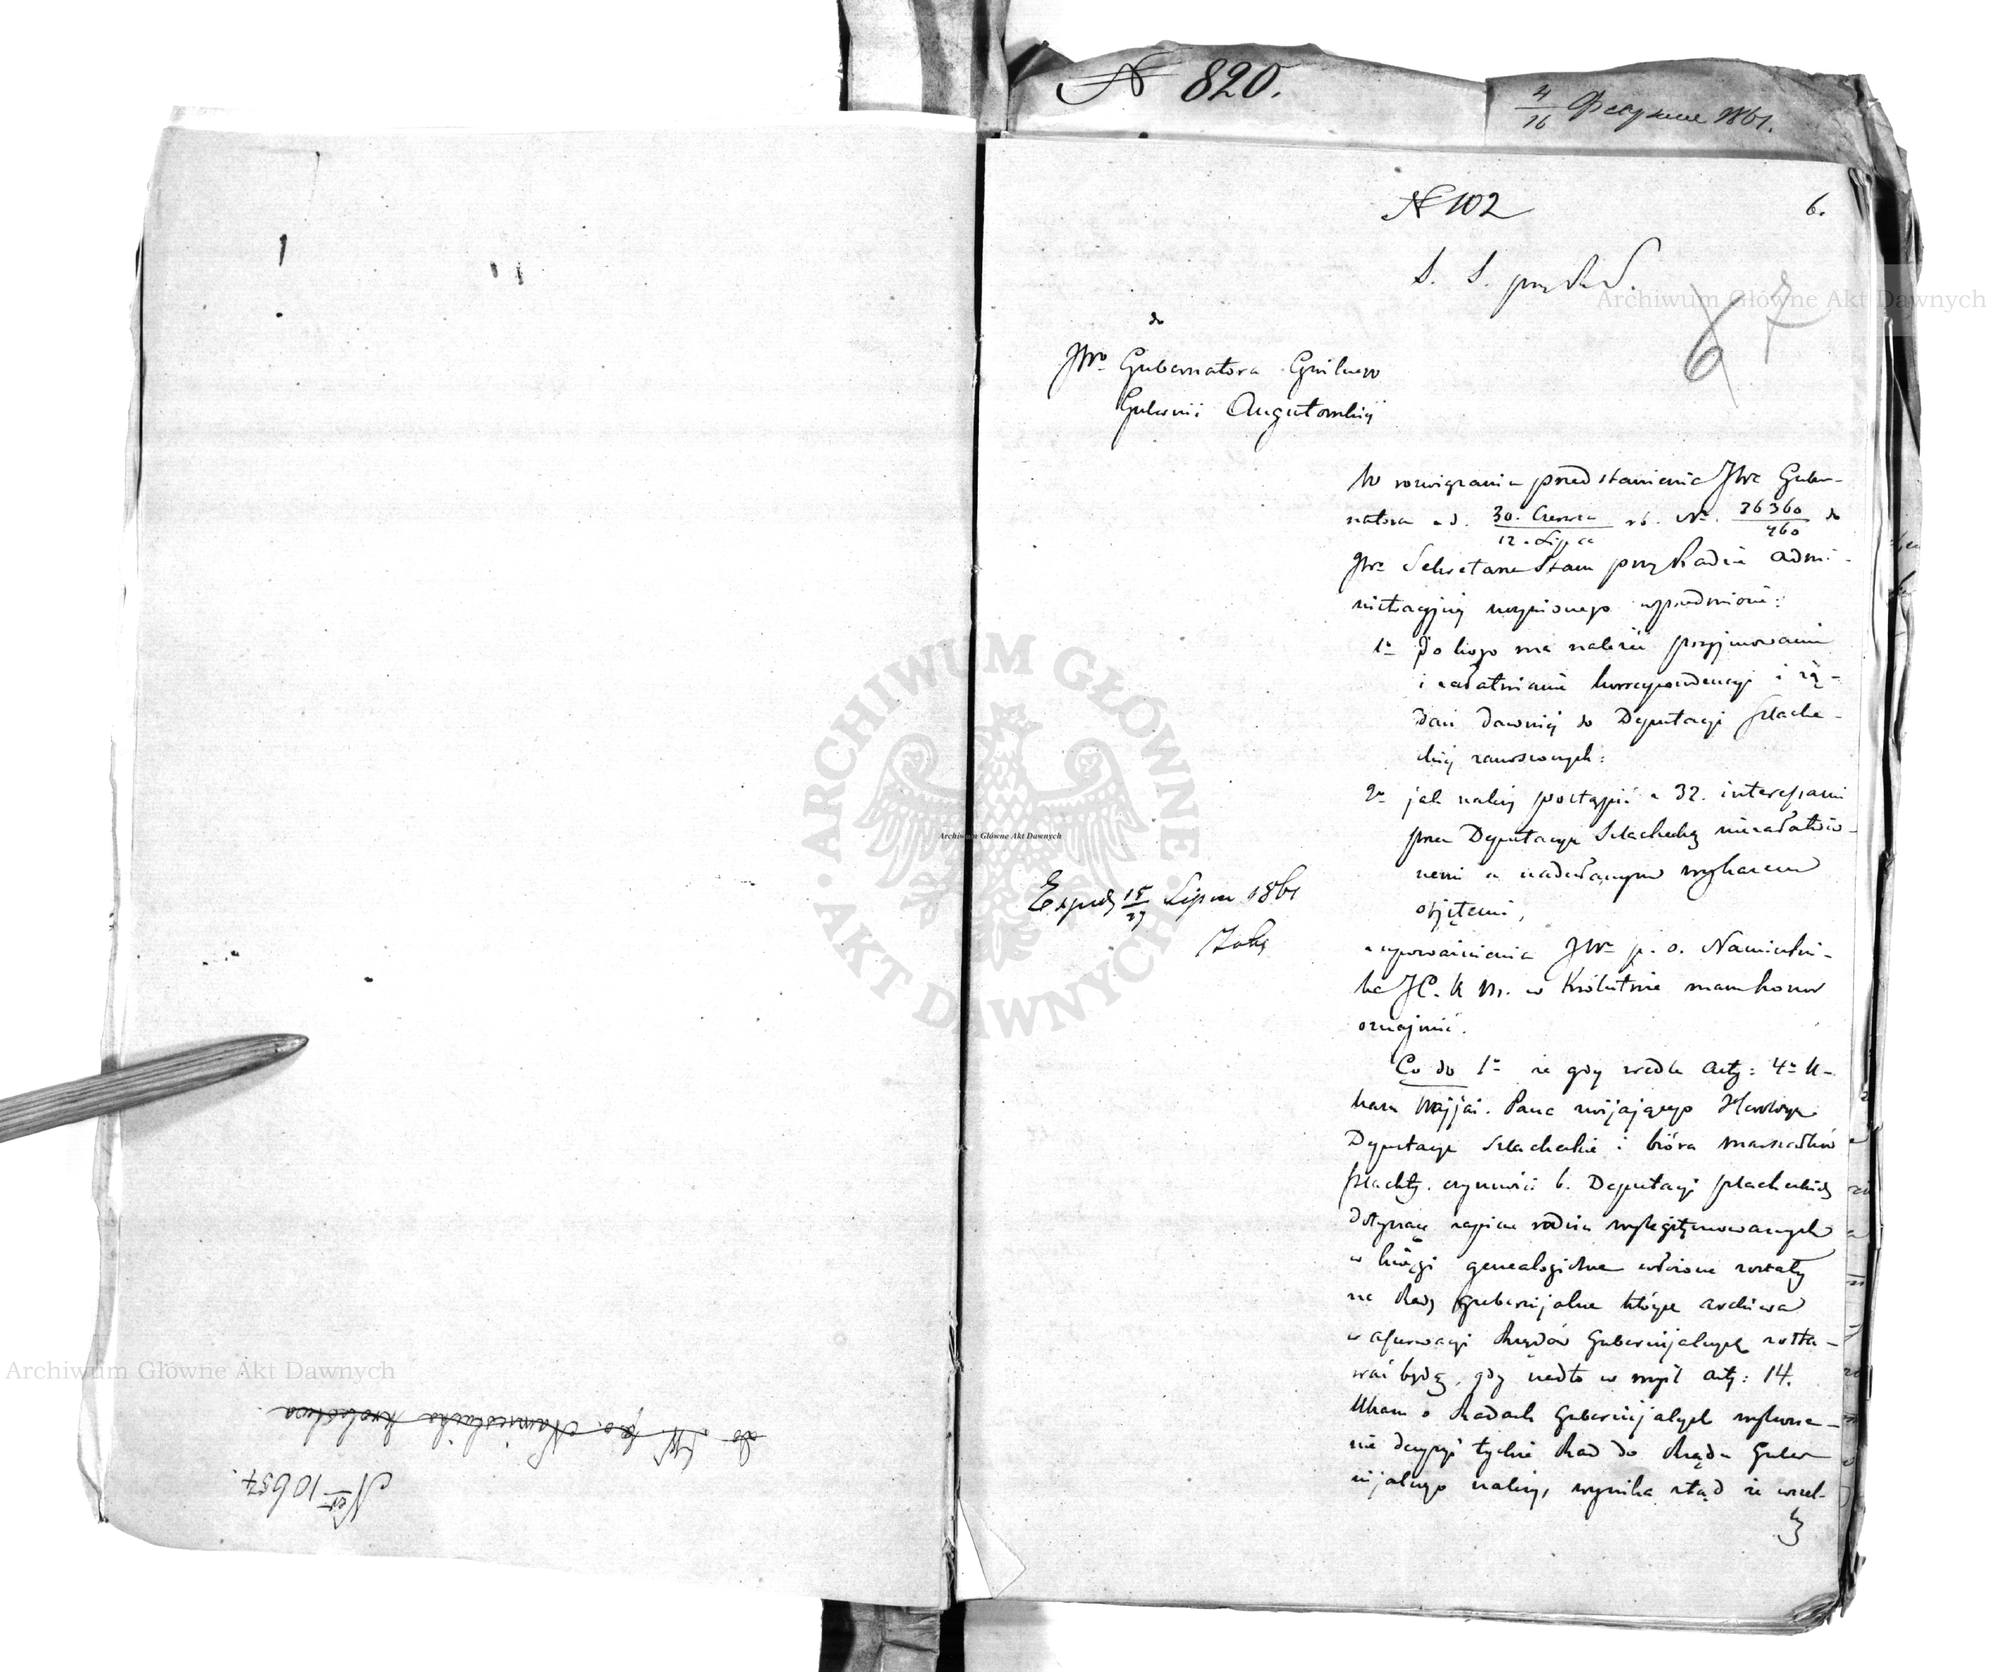 № 820.
4/16 1861.
№ 102
6.
S. S. przy R. S.
6 7
do
JWo Gubernatora Cywilnego
Gubernii Augustowskiej
W rozwiązaniu przedstawienia JWo Guber-
natora z d. 30. Czerwca/12. Lipca rb. No. 36360/460 do
JWo Sekretarza Stanu przy Radzie Admi-
nistracyjnej uczynionego w przedmiocie:
1o Do kogo ma należeć przyjmowanie
i załatwianie korrespondencyi i żą-
dań dawniej do Deputacyi szlache-
ckiej zanoszonych:
2o jak należy postąpić z 32. interesami
przez Deputacyę Szlachecką niezałatwio-
nemi a nadesłanym wykazem
objętemi,
z upoważnienia JWo p. o. Namiestni-
ka J C. K M. w Królestwie mam honor
oznajmić.
Co do 1o że gdy wedle Arty: 4o U-
kazu Najjaś. Pana zwijającego Heroldyę
Deputacye Szlacheckie i bióra marszałków
szlachty. czynności b. Deputacyi szlacheckiej
dotyczące zapisu rodzin wylegitymowanych
w księgi genealogiczne włożone zostały
na Rady gubernijalne których archiwa
w assserwacyi Rządów Gubernijalnych zosta-
wać będą, gdy nadto w myśl Arty: 14.
Ukazu o Radach Gubernijalnych wykona-
nie decyzyi tychże Rad do Rządu Guber
nijalnego należy, wynika ztąd że wszel-
Exped. 15/27 Lipca 1861
do JW p.o. Namiestnika Królestwa
Ner 10657.
Archiwum Główne Akt Dawnych
Archiwum Główne Akt Dawnych
Archiwum Główne Akt Dawnych
ARCHIWUM GŁÓWNE AKT DAWNYCH